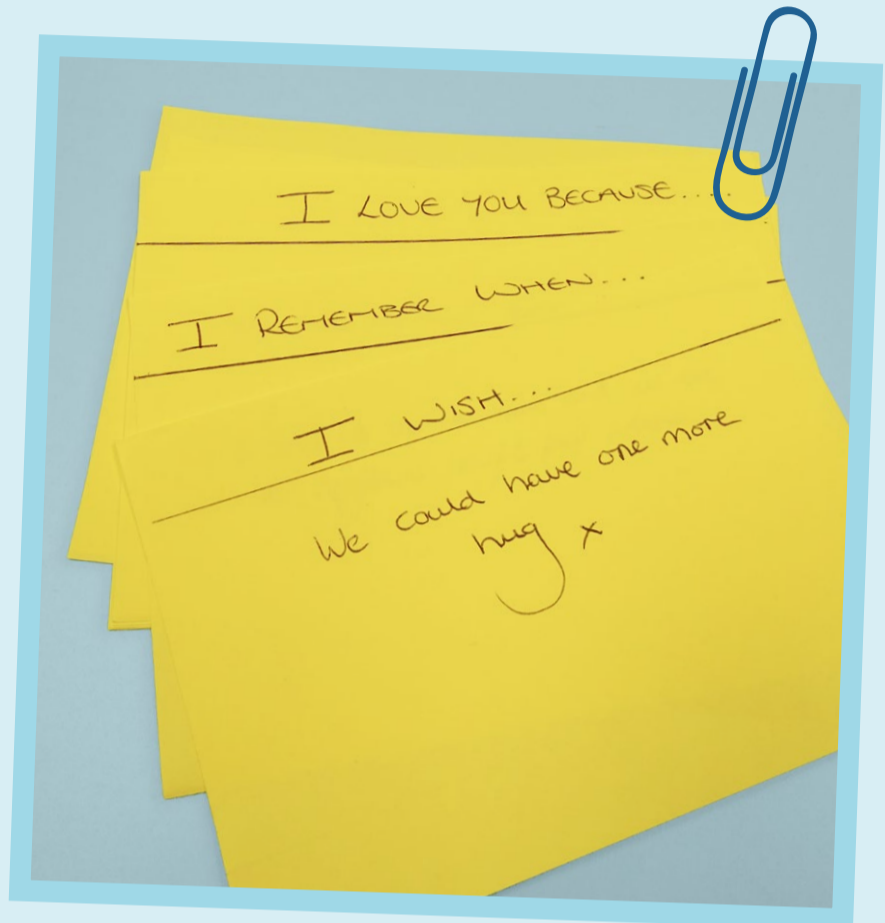 I LOVE YOU BECAUSE....
I REMEMBER WHEN...
I WISH...
We could have one more
hug x